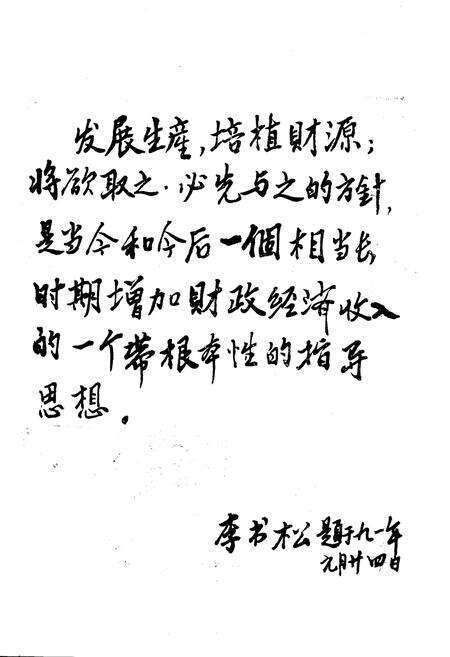 发展生產,培植財源;
将欲取之.必先与之的方針,
是当今和今后一個相当长
时期增加財政经济收入
的一个带根本性的指导
思想。
李书松题于九一年
元月廿四日